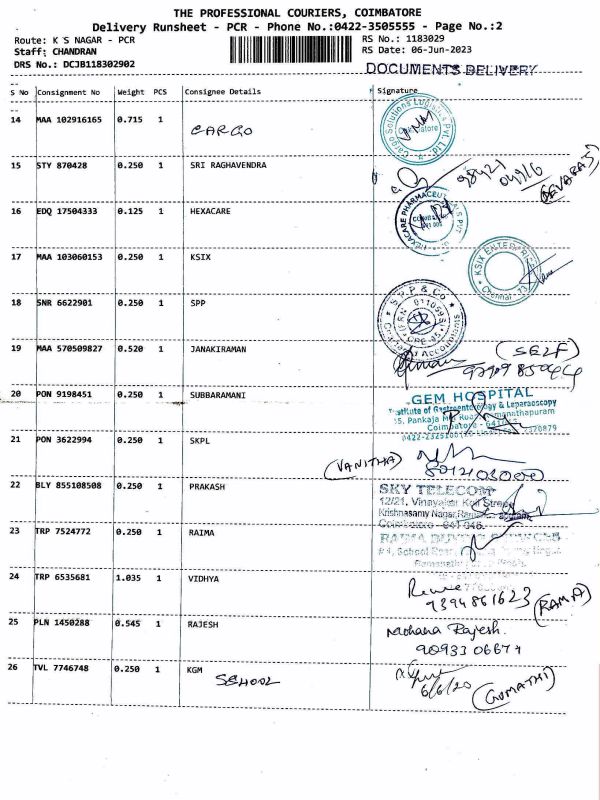 THE PROFESSIONAL COURIERS, COIMBATORE
Delivery Runsheet - PCR - Phone No.:0422-3505555 - Page No.:2
Route: K S NAGAR - PCR
RS No.: 1183029
Staff: CHANDRAN
RS Date: 06-Jun-2023
DRS No.: DCJB118302902
DOCUMENTS DELIVERY
S No Consignment No Weight PCS Consignee Details Signature
14 MAA 102916165 0.715 1 CARGO
Cargo Solutions Logistics Pvt. Ltd.
15 STY 870428 0.250 1 SRI RAGHAVENDRA
98421
16 EDQ 17504333 0.125 1 HEXACARE
HEXACARE PHARMACEUTICALS PVT
17 MAA 103060153 0.250 1 KSIX
KSIX ENTERPRISES
Chennai - 73
18 SNR 6622901 0.250 1 SPP
S P P & Co
Chartered Accountants
19 MAA 570509827 0.520 1 JANAKIRAMAN
(SELF)
20 PON 9198451 0.250 1 SUBBARAMANI
GEM HOSPITAL
Institute of Gastroenterology & Laparoscopy
Coimbatore
21 PON 3622994 0.250 1 SKPL
(VANITHA)
8012403000
22 BLY 855108508 0.250 1 PRAKASH
SKY TELECOM
12/21, Vinayakar Koil Street
Krishnasamy Nagar, Ramanathapuram,
Coimbatore - 641 045.
23 TRP 7524772 0.250 1 RAIMA
RAIMA
24 TRP 6535681 1.035 1 VIDHYA
9394861623
(RAMA)
25 PLN 1450288 0.545 1 RAJESH
Rajesh.
90933 06671
26 TVL 7746748 0.250 1 KGM
SCHOOL
6/6/20
(GOMATHI)